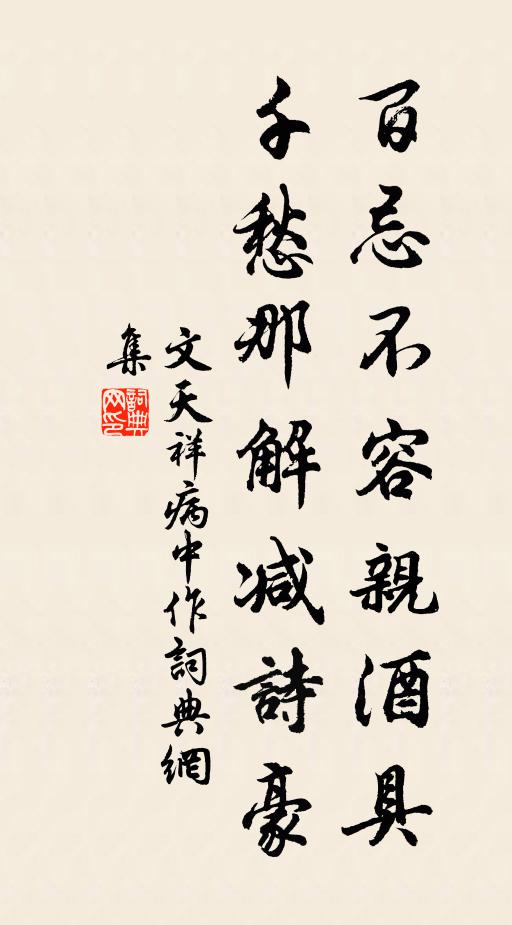 百忌不容親酒具
千愁那解减詩豪
文天祥病中作詞典網
集
詞典网印